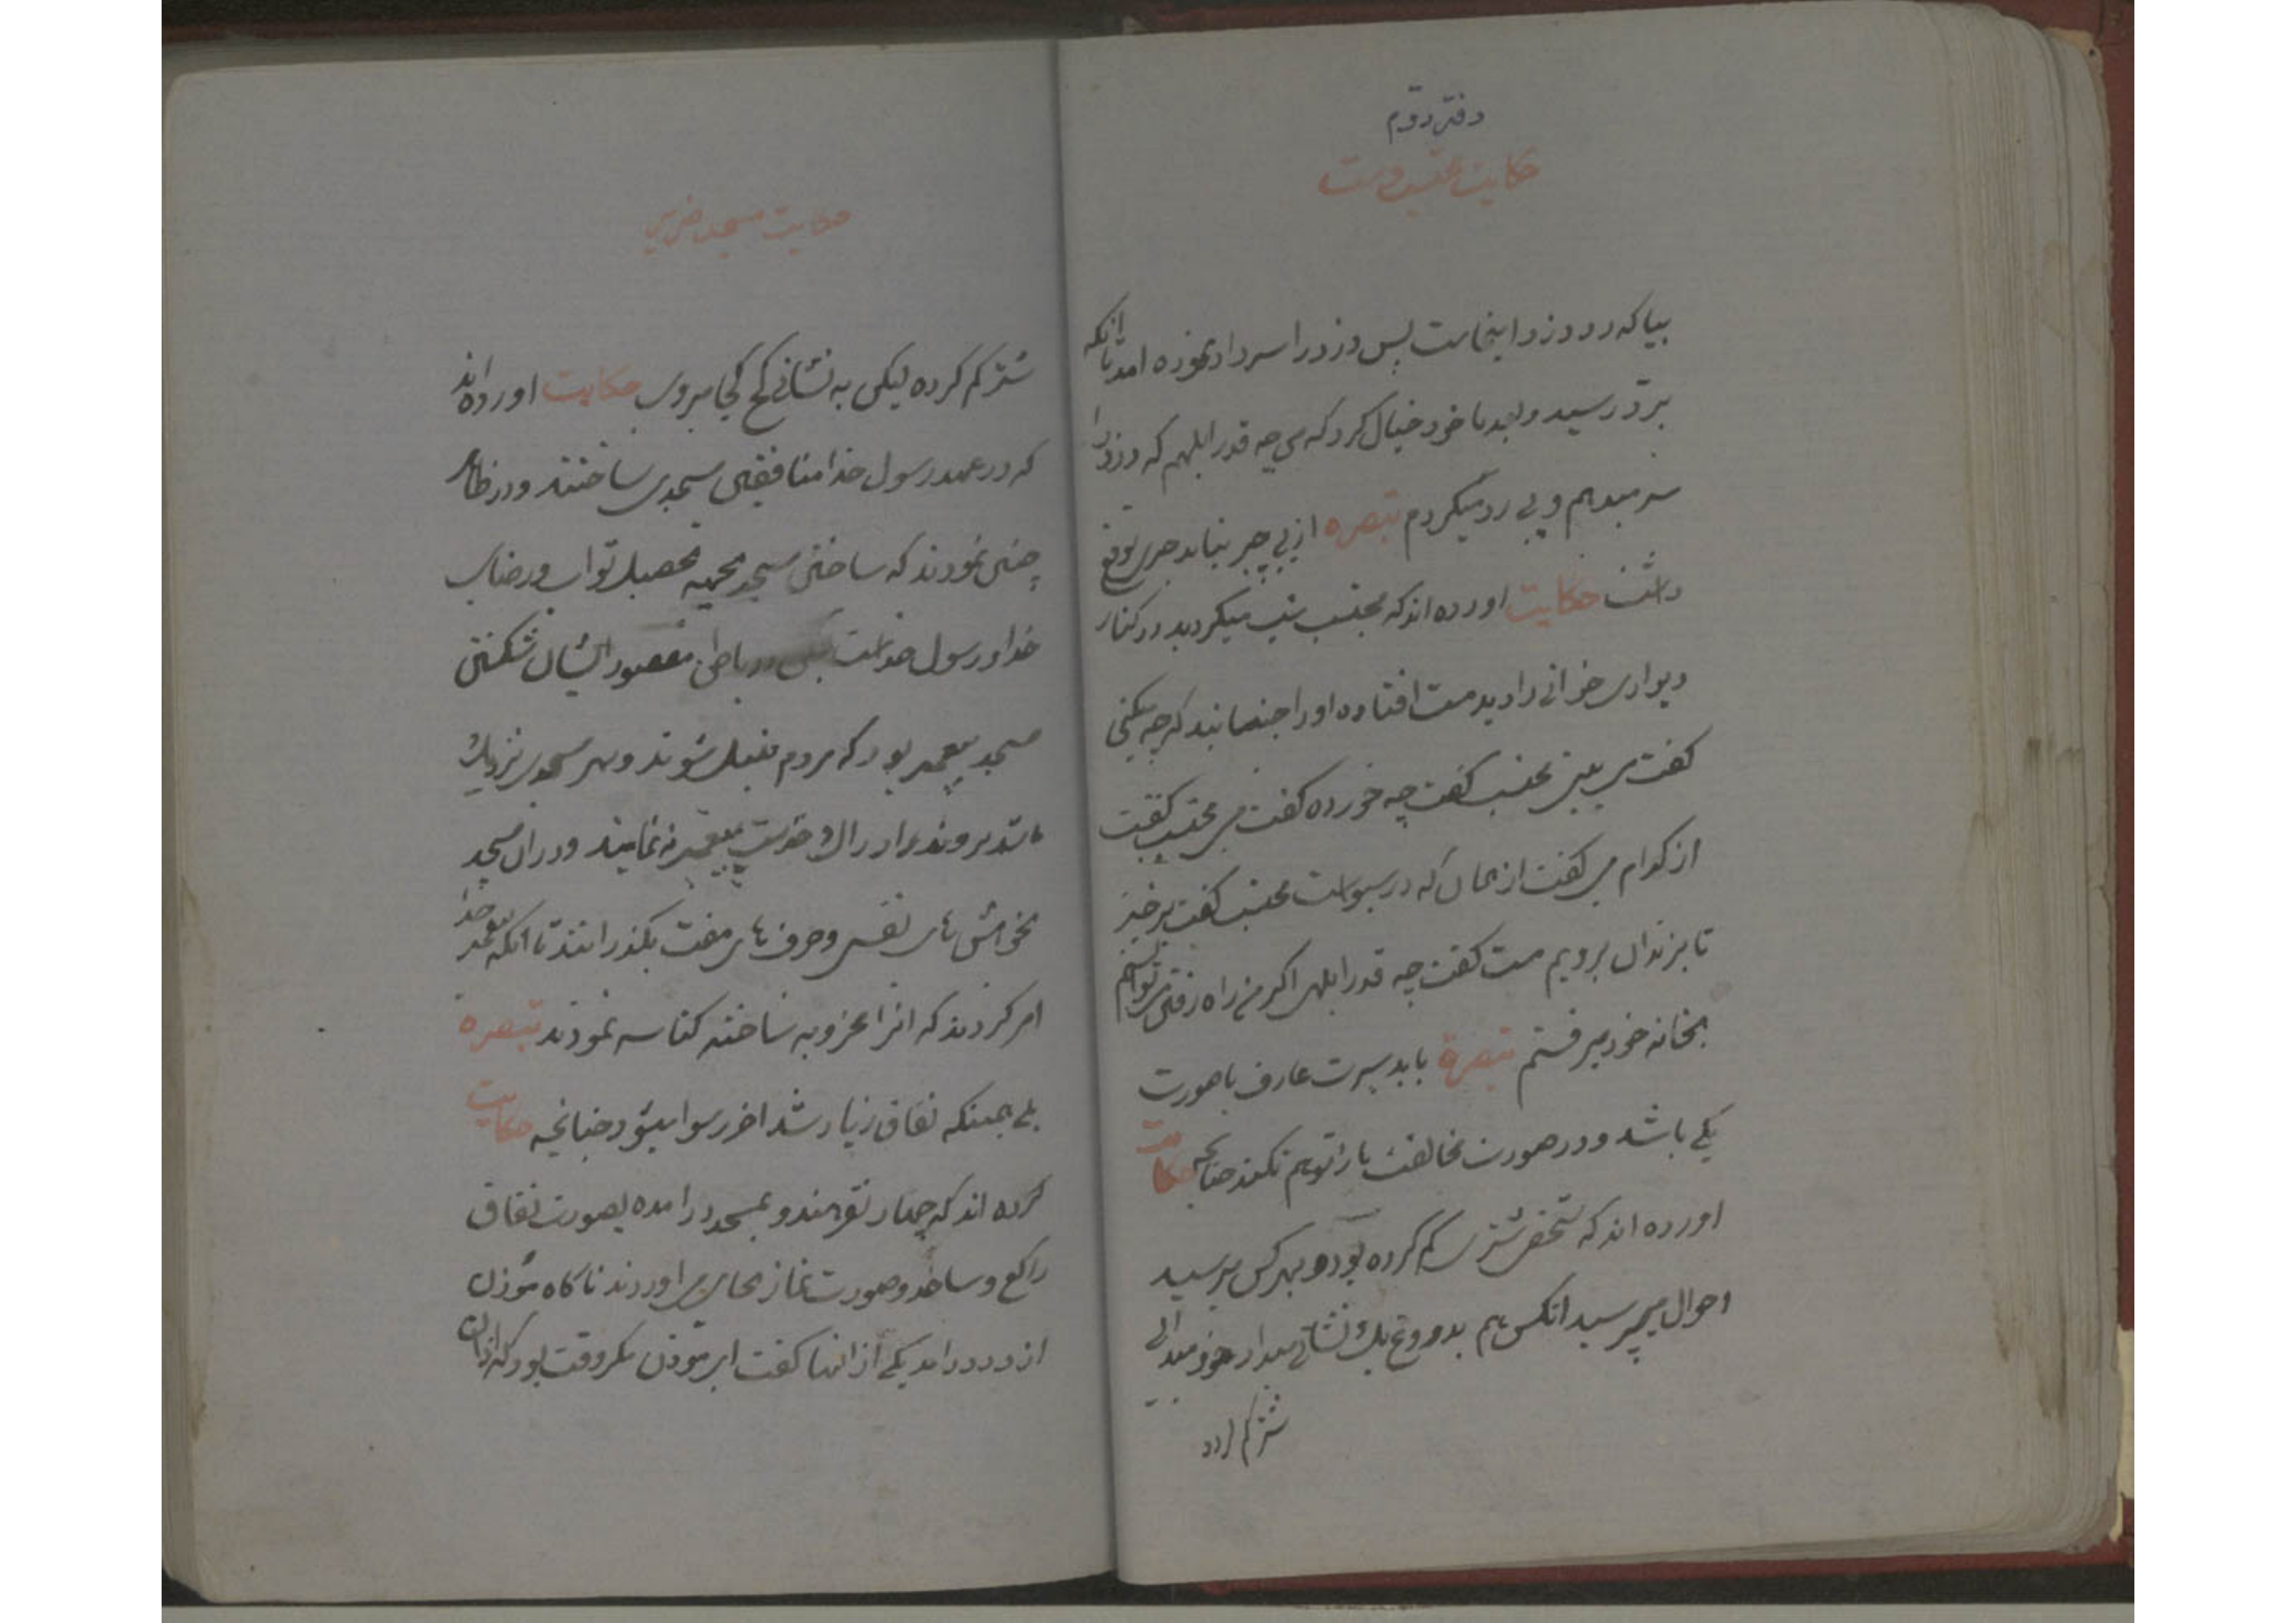 دفتر دوّم
حکایت محتسب و مست
بیا که رد دزد اینجاست پس دزد را سر داد بخورده امد تا انکه
برد رسید و بعد با خود خیال کرد که من چه قدر ابلهم که دزد را
سر میدهم و پی رد میگردم تبصره از بی چیز نباید چیزی توقع
داشت حکایت اورده اند که محتسب شب میگردید در کنار
دیواری خرابی را دید مست افتاده او را جنبانید که چه میکنی
کفت می بین محتسب کفت چه خورده کفت می محتسب کفت
از کدام می کفت از همان که در سبوست محتسب کفت برخیز
تا بزندان برویم مست کفت چه قدر ابلهی اکر من راه رفتن میتوانستم
بخانه خود میرفتم تبصرة باید سیرت عارف با صورت
یکی باشد و در صورت مخالفت یار توهم نکند چنانچه حکایت
اورده اند که شخصی شتری کم کرده بود و بهر کس میرسید
احوال میپرسید انکس هم بدروغ یک نشانی میداد
شتر کم کرده
حکایت مسجد ضرار
شتر کم کرده لیکن به نشانی کج کجا میروی حکایت اورده اند
که در عهد رسول خدا منافقین مسجدی ساختند و در ظاهر
چنین نمودند که ساختن مسجد بجهة تحصیل ثواب و رضای
خدا و رسول خداست لیکن در باطن مقصود ایشان شکستن
مسجد پیغمبر بود که مردم منتقل شوند و بهر مسجدی نزدیک
باشد بروند و ادراک خدمت پیغمبر نه نمایند و در ان مسجد
بخواهش های نفس و حرف های مفت بکذرانند تا انکه پیغمبر خدا
امر کردند که انرا مخروبه ساخته کناسه نمودند تبصره
بلی همینکه نفاق زیاد شد اخر رسوا میشود چنانچه حکایت
کرده اند که چهار نفر هندو بمسجد درامده بصورت نفاق
راکع و ساجد و صورت نماز بجای می اوردند ناکاه موذن
از در درامد یکی از انها کفت ای موذن مکر وقت بود که اذان